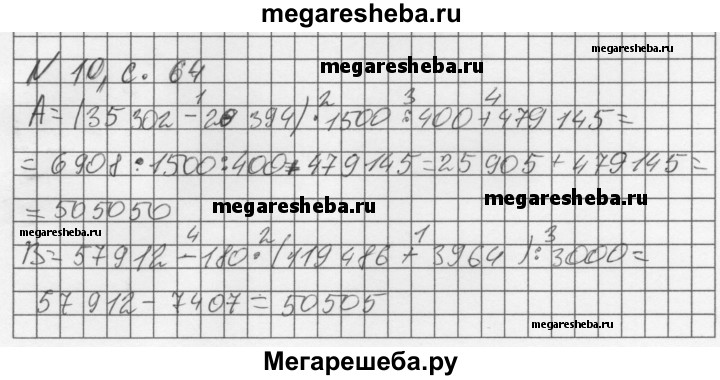 megaresheba.ru
megaresheba.ru
N 10, с. 64
megaresheba.ru
1 2 3 4
A = (35 302 - 28 394) · 1500 : 400 + 479 145 =
= 6908 · 1500 : 400 + 479145 = 25 905 + 479145 =
megaresheba.ru
= 505050 megaresheba.ru
megaresheba.ru
4 2 1 3
B = 57912 - 180 · (119 486 + 3964) : 3000 =
57 912 - 7407 = 50505
megaresheba.ru
Мегарешеба.ру